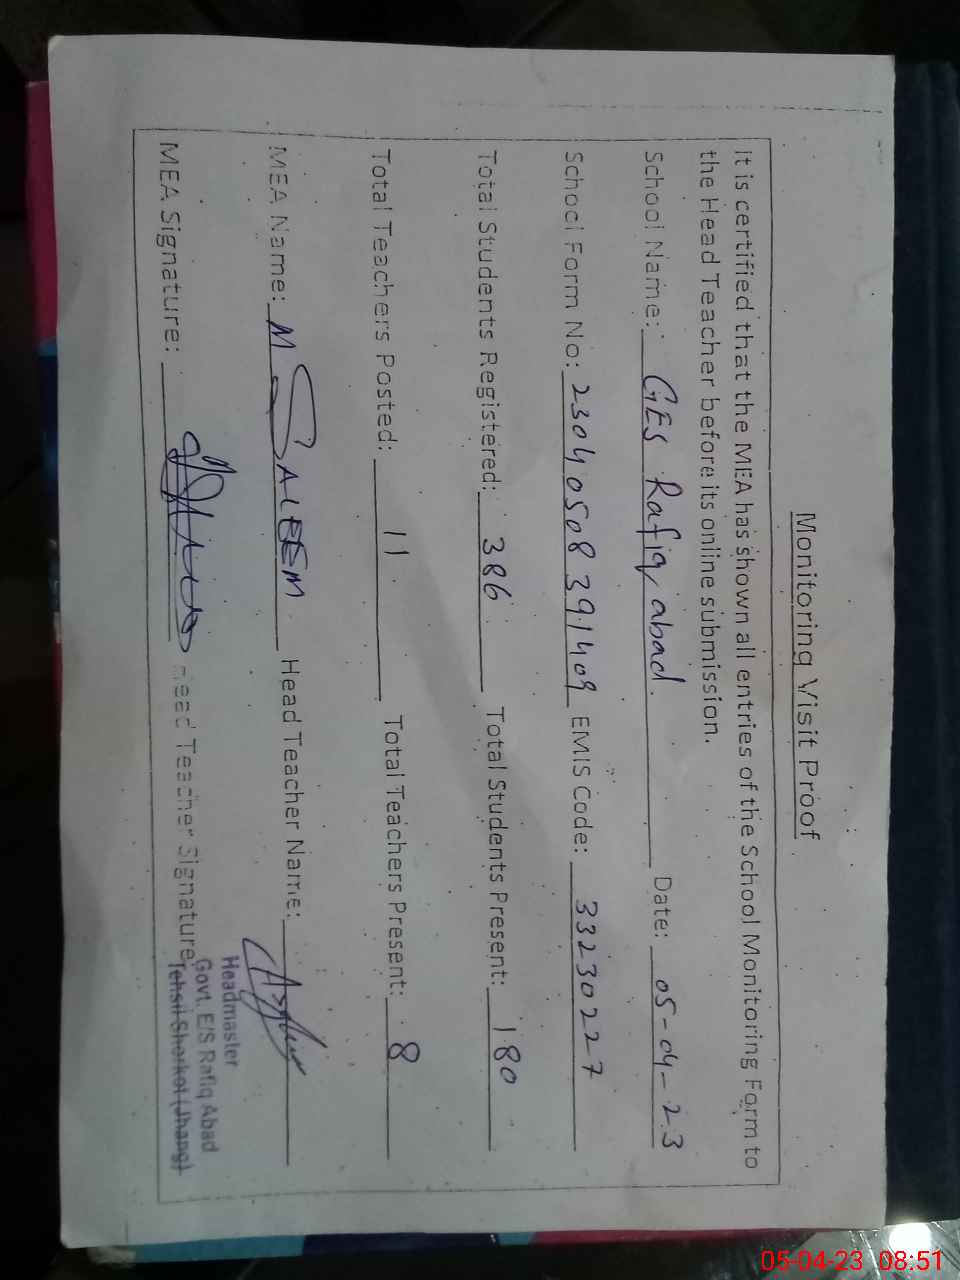 Monitoring Visit Proof
It is certified that the MEA has shown all entries of the School Monitoring Form to
the Head Teacher before its online submission.
School Name: GES Rafiq abad. Date: 05-04-23
School Form No: 23040508391409 EMIS Code: 33230227
Total Students Registered: 386 Total Students Present: 180
Total Teachers Posted: 11 Total Teachers Present: 8
MEA Name: M. SALEEM. Head Teacher Name:
MEA Signature: Head Teacher Signature
Headmaster
Govt. E/S Rafiq Abad
Tehsil Shorkot (Jhang)
05-04-23 08:51